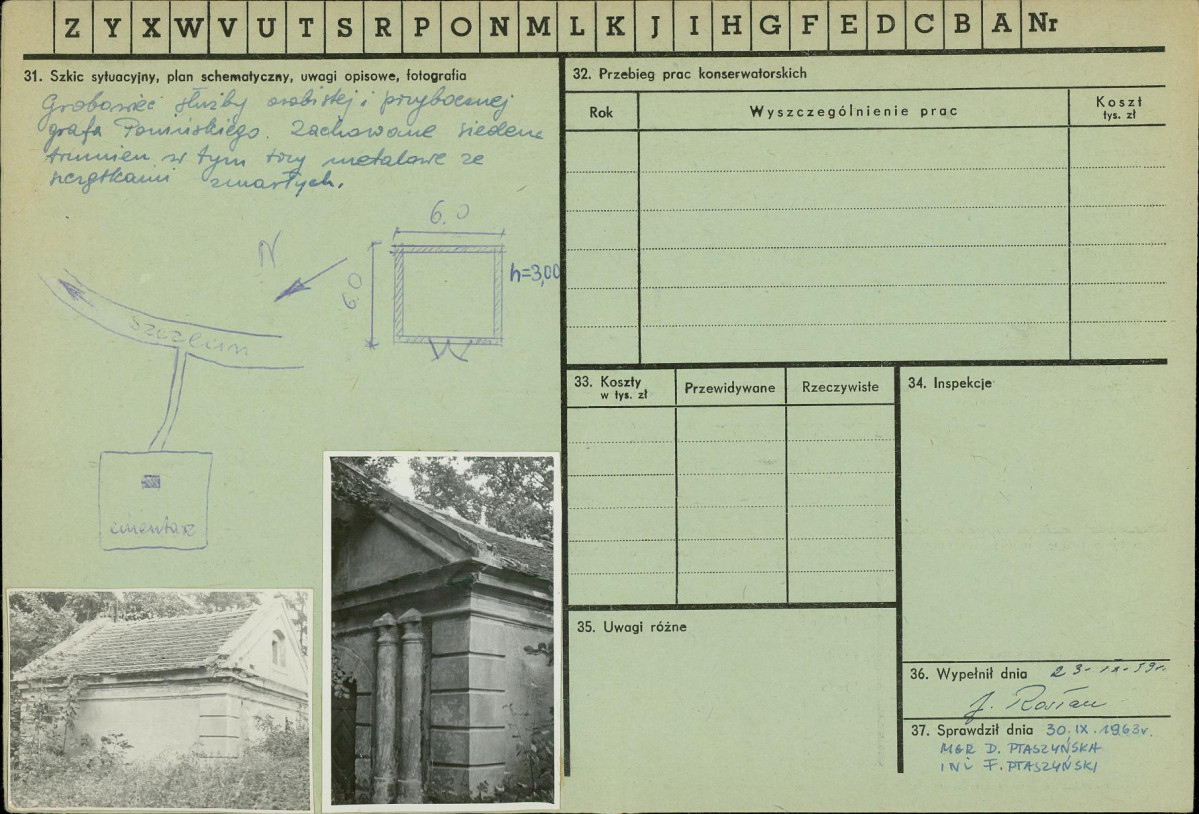 Z Y X W V U T S R P O N M L K J I H G F E D C B A Nr
31. Szkic sytuacyjny, plan schematyczny, uwagi opisowe, fotografia
Grobowiec służby osobistej i przybocznej
grafa Ponińskiego. Zachowane siedem
trumien w tym trzy metalowe ze
szczątkami zmarłych.
6.0
6.0
h=3,00
N
cmentarz
32. Przebieg prac konserwatorskich
Rok
Wyszczególnienie prac
Koszt
tys. zł
33. Koszty
w tys. zł
Przewidywane
Rzeczywiste
34. Inspekcje
35. Uwagi różne
36. Wypełnił dnia 23. IX. 59r.
37. Sprawdził dnia 30.IX.1963r.
MGR D. PTASZYŃSKA
INŻ F. PTASZYŃSKI